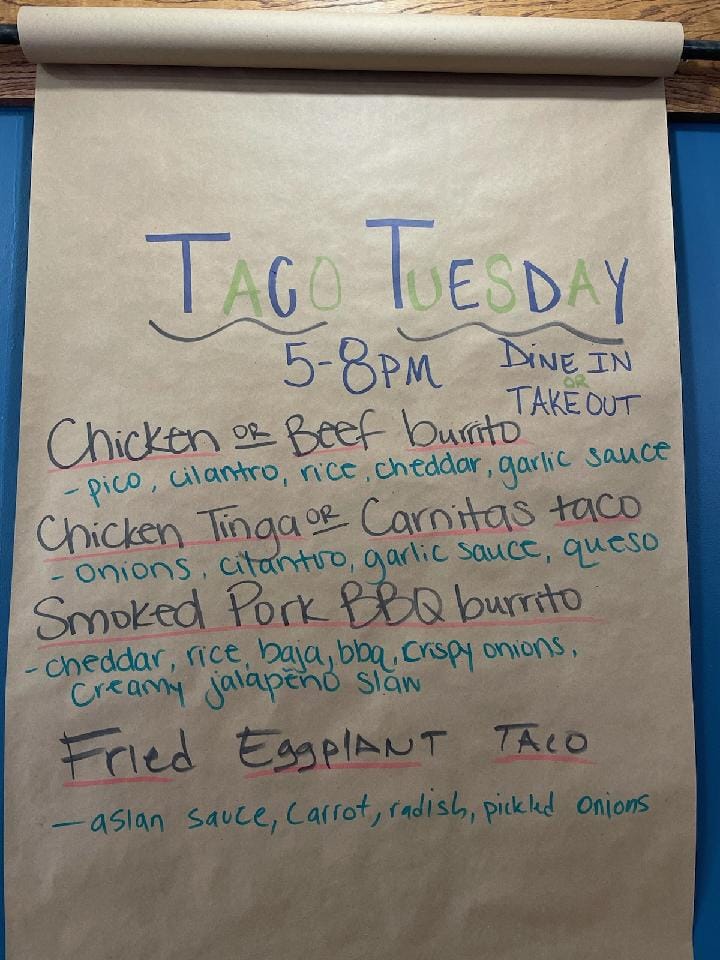 TACO TUESDAY
5-8PM DINE IN
OR
TAKE OUT
Chicken OR Beef burrito
- pico, cilantro, rice, cheddar, garlic sauce
Chicken Tinga OR Carnitas taco
- onions, cilantro, garlic sauce, queso
Smoked Pork BBQ burrito
- cheddar, rice, baja, bbq, crispy onions,
creamy jalapeño slaw
Fried EggplANT TACO
- asian sauce, carrot, radish, pickld onions